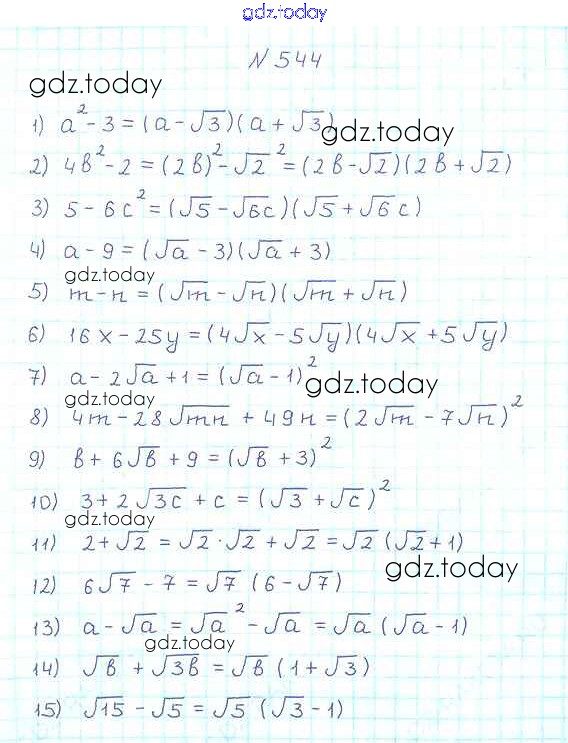 gdz.today
№ 544
gdz.today
1) a² - 3 = (a - √3)(a + √3)
gdz.today
2) 4в² - 2 = (2в)² - √2² = (2в - √2)(2в + √2)
3) 5 - 6c² = (√5 - √6c)(√5 + √6 c)
4) a - 9 = (√a - 3)(√a + 3)
gdz.today
5) m - n = (√m - √n)(√m + √n)
6) 16x - 25y = (4√x - 5√y)(4√x + 5√y)
7) a - 2√a + 1 = (√a - 1)²
gdz.today
gdz.today
8) 4m - 28√mn + 49n = (2√m - 7√n)²
9) в + 6√в + 9 = (√в + 3)²
10) 3 + 2√3c + c = (√3 + √c)²
gdz.today
11) 2 + √2 = √2 · √2 + √2 = √2 (√2 + 1)
gdz.today
12) 6√7 - 7 = √7 (6 - √7)
13) a - √a = √a² - √a = √a (√a - 1)
gdz.today
14) √в + √3в = √в (1 + √3)
15) √15 - √5 = √5 (√3 - 1)